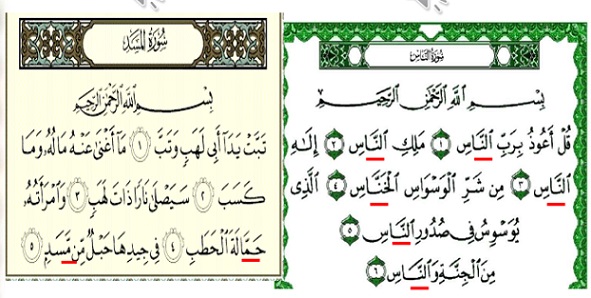 سُورَةُ المَسَدِ
بِسْمِ ٱللَّهِ ٱلرَّحْمَٰنِ ٱلرَّحِيمِ
تَبَّتْ يَدَآ أَبِى لَهَبٍ وَتَبَّ ١ مَآ أَغْنَىٰ عَنْهُ مَالُهُۥ وَمَا
كَسَبَ ٢ سَيَصْلَىٰ نَارًا ذَاتَ لَهَبٍ ٣ وَٱمْرَأَتُهُۥ
حَمَّالَةَ ٱلْحَطَبِ ٤ فِى جِيدِهَا حَبْلٌ مِّن مَّسَدٍۭ ٥
سُورَةُ النَّاسِ
بِسْمِ ٱللَّهِ ٱلرَّحْمَٰنِ ٱلرَّحِيمِ
قُلْ أَعُوذُ بِرَبِّ ٱلنَّاسِ ١ مَلِكِ ٱلنَّاسِ ٢ إِلَٰهِ
ٱلنَّاسِ ٣ مِن شَرِّ ٱلْوَسْوَاسِ ٱلْخَنَّاسِ ٤ ٱلَّذِى
يُوَسْوِسُ فِى صُدُورِ ٱلنَّاسِ ٥
مِنَ ٱلْجِنَّةِ وَٱلنَّاسِ ٦